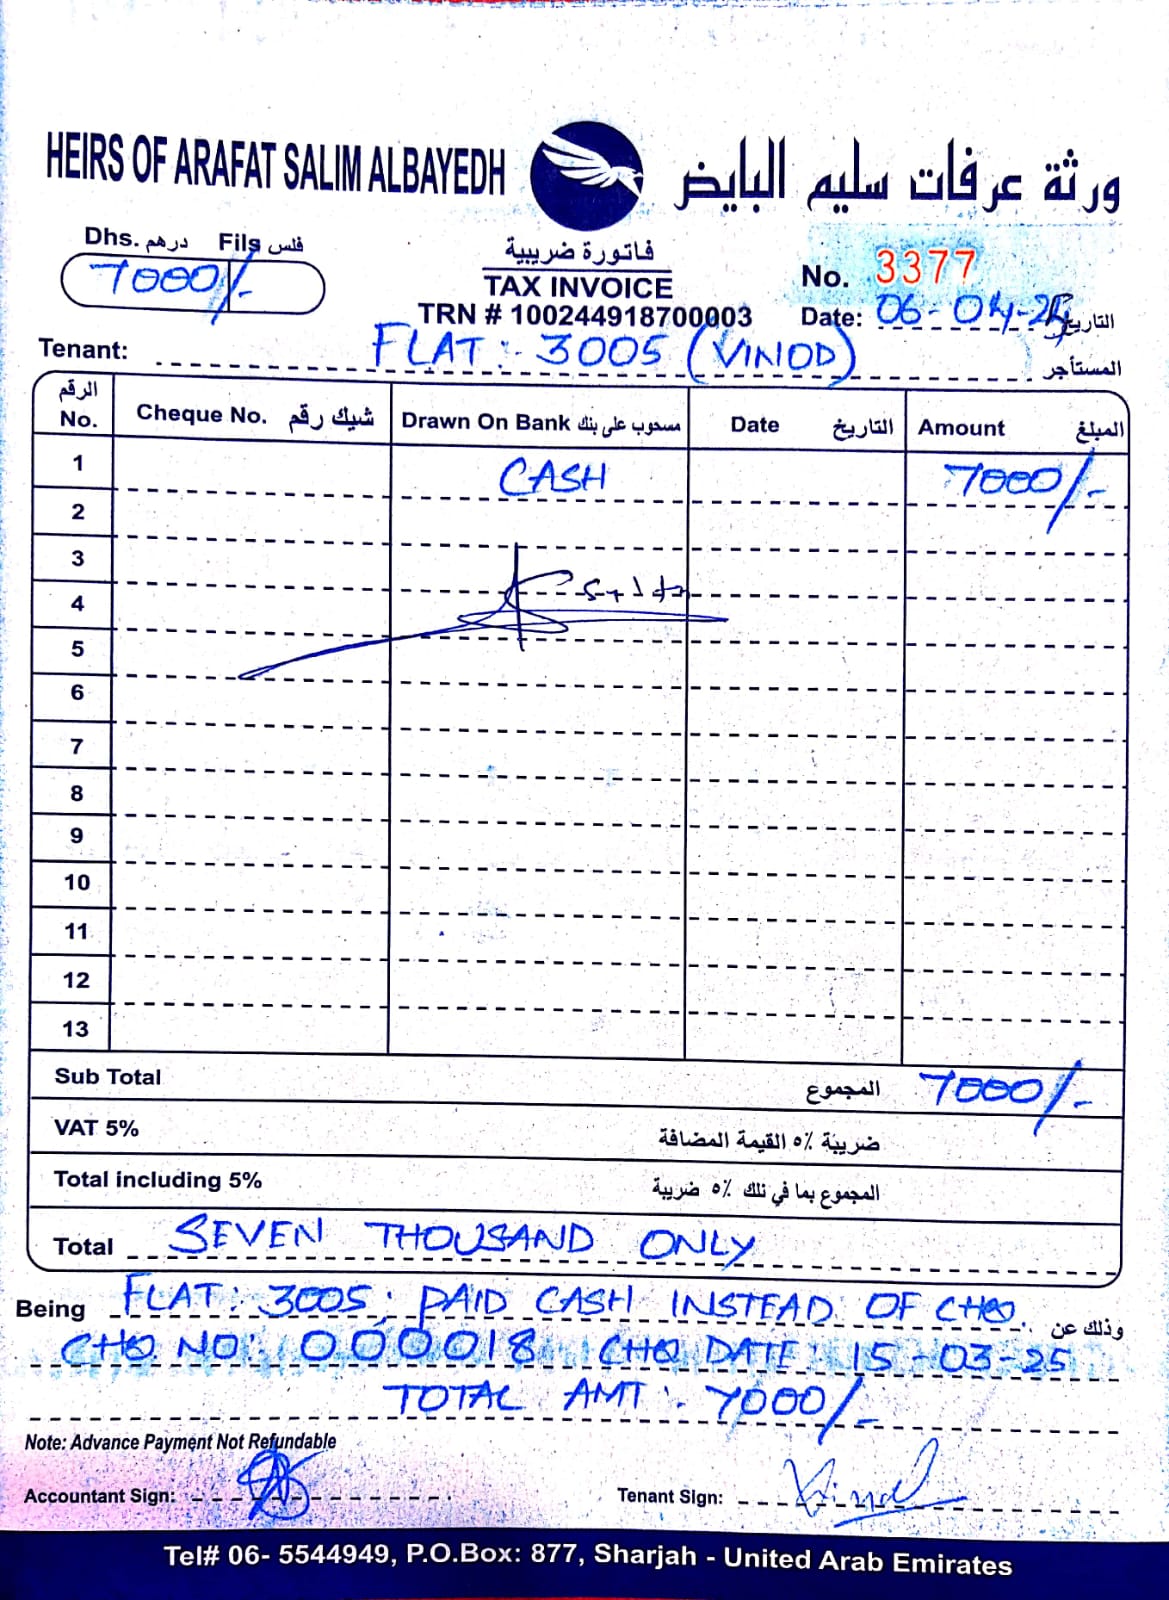 HEIRS OF ARAFAT SALIM ALBAYEDH ورثة عرفات سليم البايض
Dhs. درهم Fils فلس
7000/-
فاتورة ضريبية
TAX INVOICE
TRN # 100244918700003
No. 3377
Date: 06-04-25 التاريخ
Tenant: FLAT:- 3005 (VINOD) المستأجر
الرقم No. Cheque No. شيك رقم Drawn On Bank مسحوب على بنك Date التاريخ Amount المبلغ
1 CASH 7000/-
2
3
4
5
6
7
8
9
10
11
12
13
Sub Total المجموع 7000/-
VAT 5% ضريبة ٥٪ القيمة المضافة
Total including 5% المجموع بما في ذلك ٥٪ ضريبة
Total SEVEN THOUSAND ONLY
Being FLAT: 3005; PAID CASH INSTEAD OF CHQ. وذلك عن
CHQ NO: 000018 CHQ DATE: 15-03-25
TOTAL AMT: 7000/-
Note: Advance Payment Not Refundable
Accountant Sign:
Tenant Sign: Vinod
Tel# 06- 5544949, P.O.Box: 877, Sharjah - United Arab Emirates